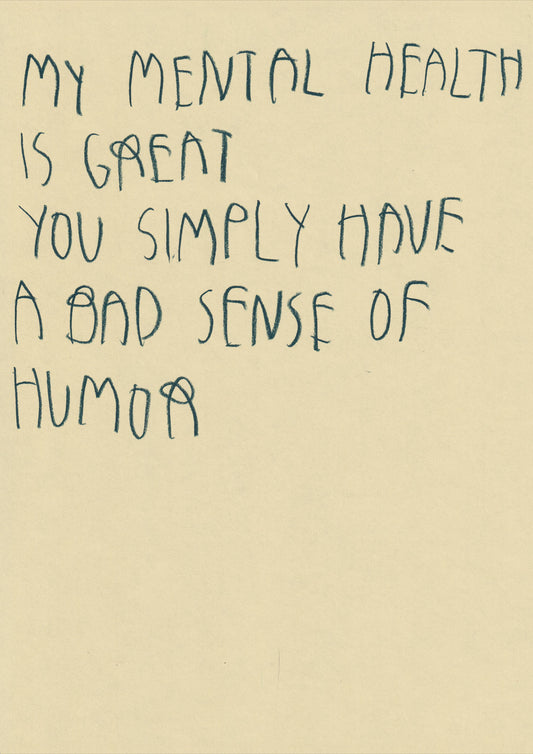 MY MENTAL HEALTH
IS GREAT
YOU SIMPLY HAVE
A BAD SENSE OF
HUMOR